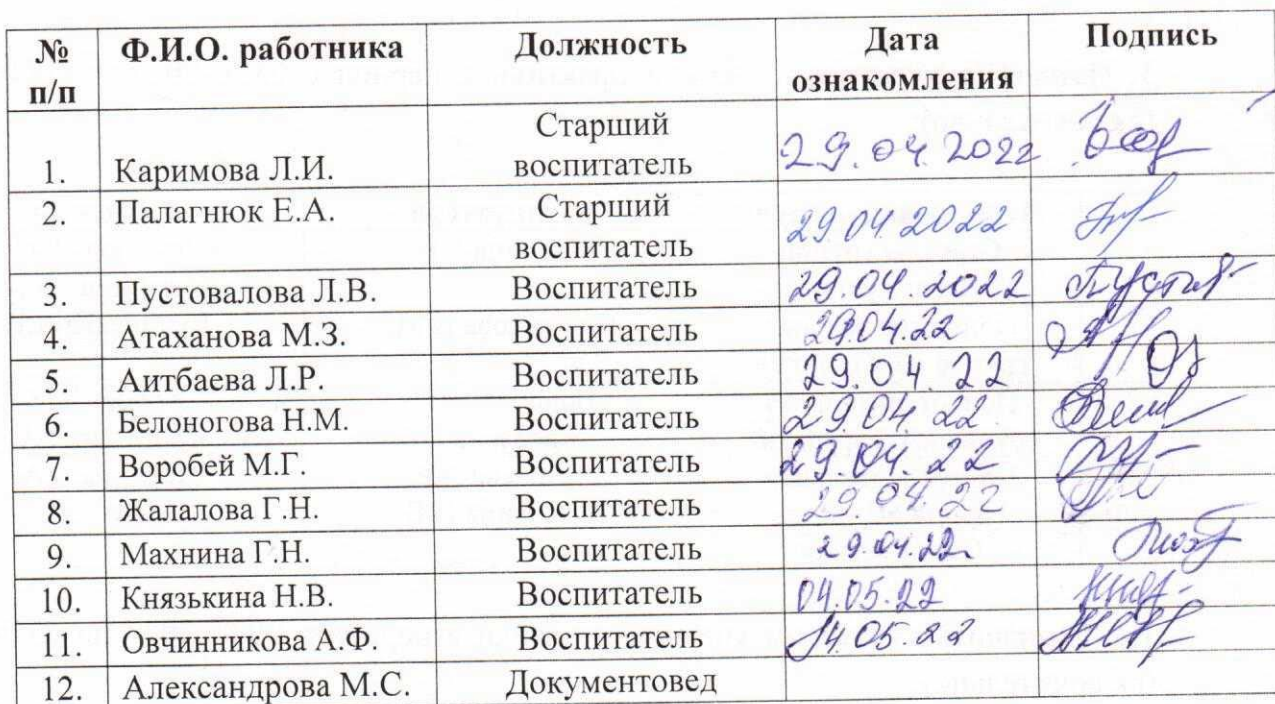 № п/п Ф.И.О. работника Должность Дата ознакомления Подпись
1. Каримова Л.И. Старший воспитатель 29.04.2022
2. Палагнюк Е.А. Старший воспитатель 29.04.2022
3. Пустовалова Л.В. Воспитатель 29.04.2022
4. Атаханова М.З. Воспитатель 29.04.22
5. Аитбаева Л.Р. Воспитатель 29.04.22
6. Белоногова Н.М. Воспитатель 29.04.22
7. Воробей М.Г. Воспитатель 29.04.22
8. Жалалова Г.Н. Воспитатель 29.04.22
9. Махнина Г.Н. Воспитатель 29.04.22
10. Князькина Н.В. Воспитатель 04.05.22
11. Овчинникова А.Ф. Воспитатель 14.05.22
12. Александрова М.С. Документовед